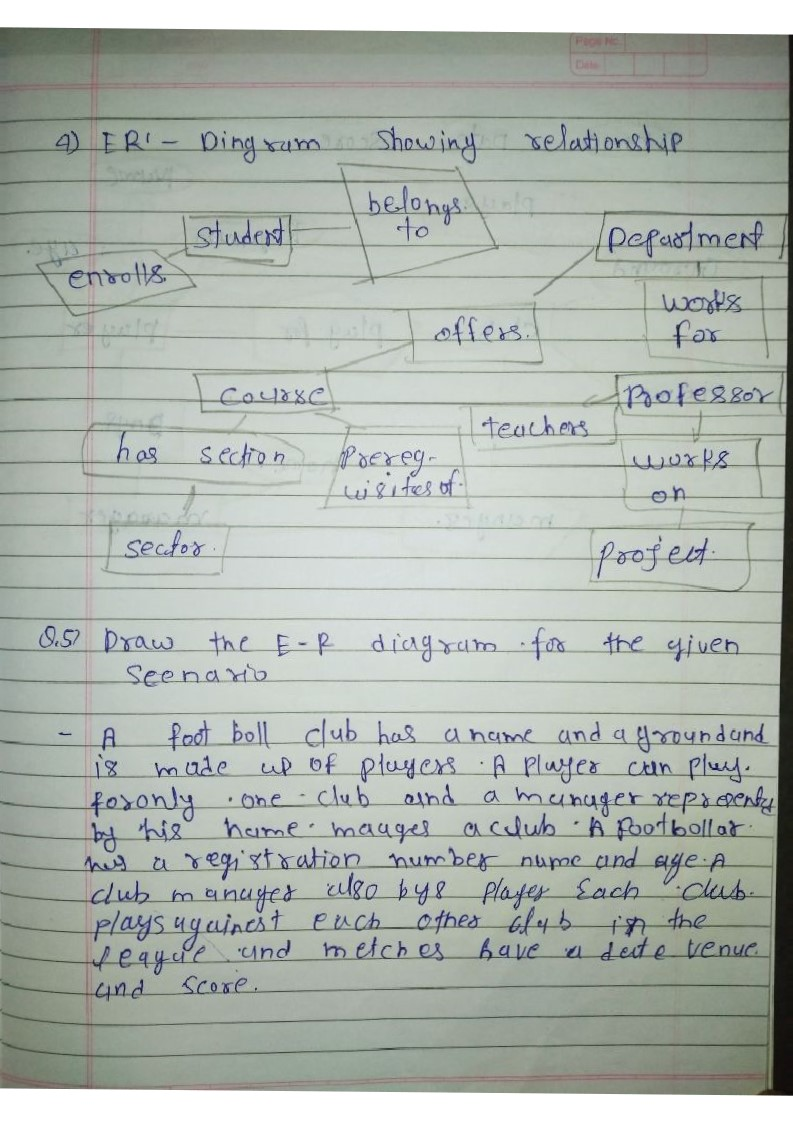 Page No.
Date
4) ER' - Dingram Showing relationship
belongs
to
student
Department
enrolls.
works
for
offers.
course
Professor
teachers
has section
Prereq-
uisites of.
works
on
sector.
project.
Q.5) Draw the E-R diagram for the given
Seenario
- A foot boll club has a name and a ground and
is made up of players. A player can play.
for only one club and a manager represents
by his name mauges a club. A footbollar
has a registration number name and age. A
club manager also bys player Each club.
plays againest each other club in the
league and metches have a date venue.
and score.